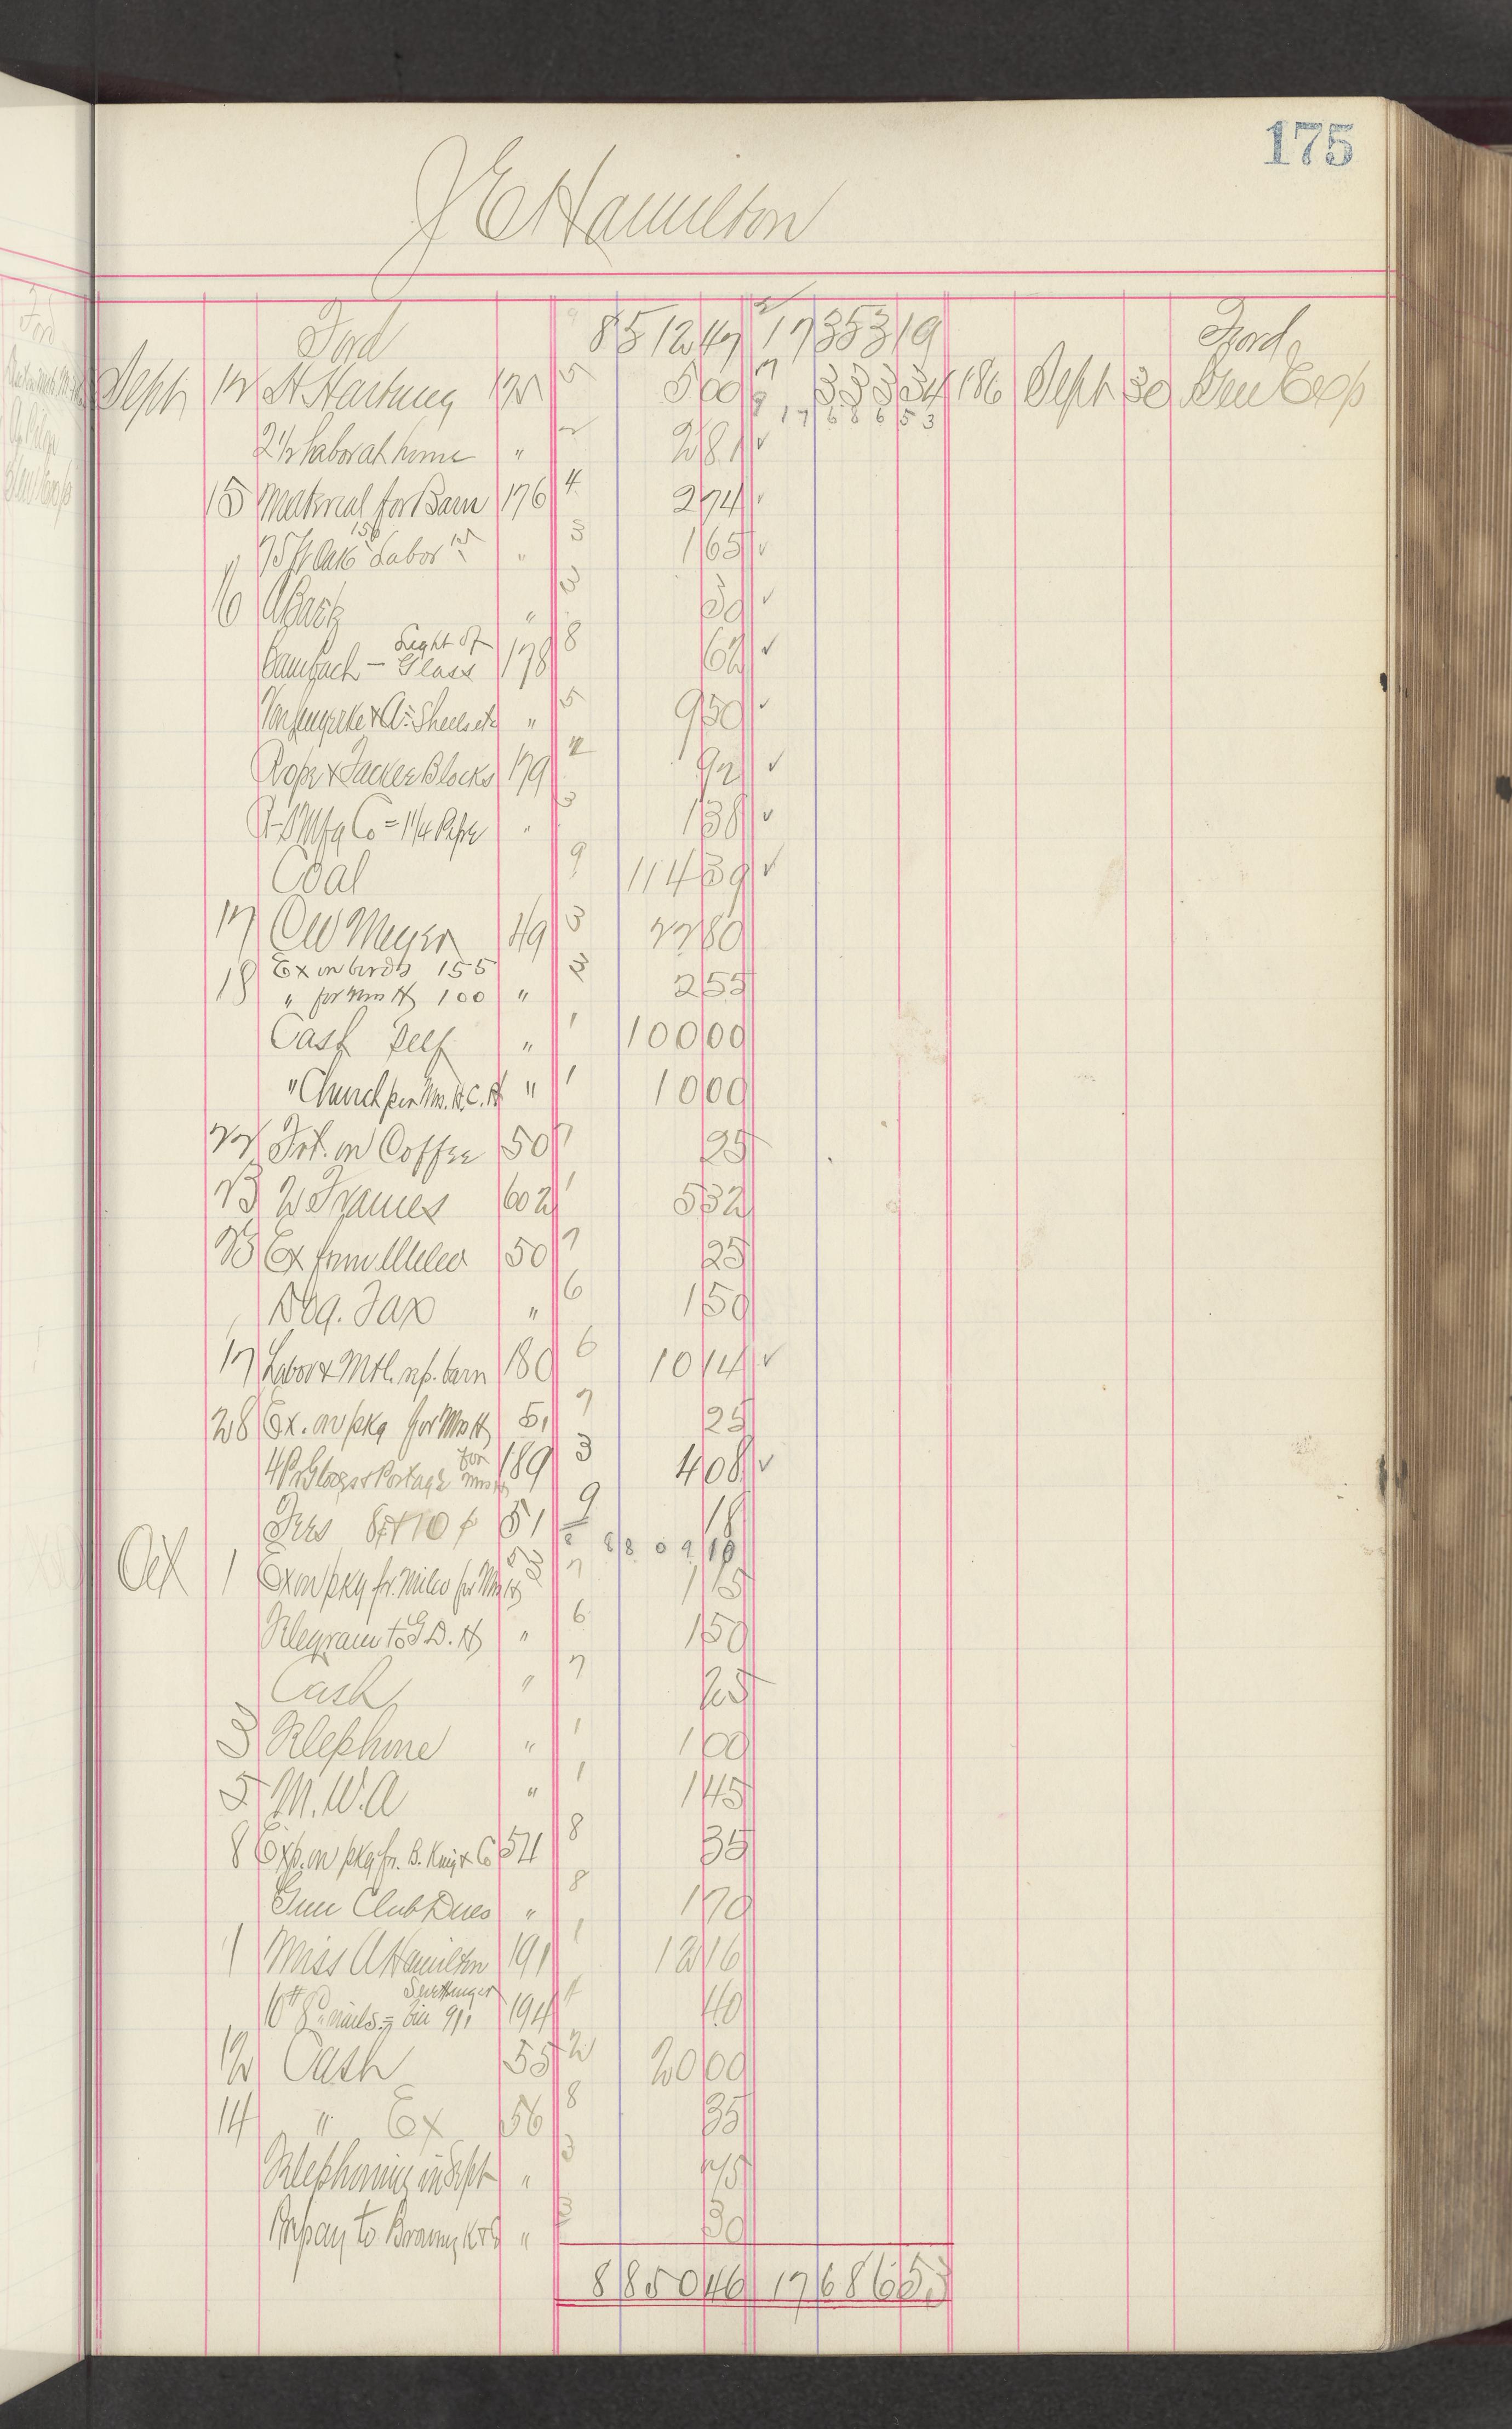 175
J E Hamilton
Ford 8512 47 17353 19 Ford
Sept 12 H Hartung 5 5 00 333 34 186 Sept 30 Gen Exp
17686 53
2½ Labor at home " 2 81 ✓
15 Material for Barn 176 4 2 74 ✓
" 75 ft Oak 150 Labor 15 " 3 1 65 ✓
16 " 3 30 ✓
Light of
Glass 178 8 62 ✓
" 5 9 50 ✓
Rope & Tackle Blocks 179 92 ✓
Mfg Co = 1¼ Pipe " 3 1 38 ✓
Coal 9 114 39 ✓
17 O W Meyer 49 3 22 80
18 Ex on birds 155
" for Mrs H 100 " 3 2 55
Cash Self " 1 100 00
" Church per Mrs. H. C. H " 1 10 00
22 Frt. on Coffee 50 7 25
23 W Frames 602 1 5 32
25 Ex from 50 7 25
Dog. Tax " 6 1 50
17 Labor & Mtl. rep. barn 180 6 10 14 ✓
28 Ex. on pkg for Mrs H 51 7 25
4 Pr Gloves & Postage for Mrs H 189 3 4 08 ✓
51 9 18
8809 10
Oct 1 Ex on pkg fr. Milw for Mrs H 53 7 1 15
Telegram to G. D. H " 6 1 50
Cash " 7 25
3 Telephone " 1 1 00
5 M. W. A " 1 1 45
8 Exp. on pkg fr. B. King & Co 54 8 35
Gun Club Dues " 8 1 70
1 Miss A Hamilton 191 1 12 16
10# nails = bill 911 194 4 40
12 Cash 55 2 20 00
14 " Ex 56 8 35
Telephoning in Sept " 3 75
Prepay to " 3 30
8850 46 17686 53